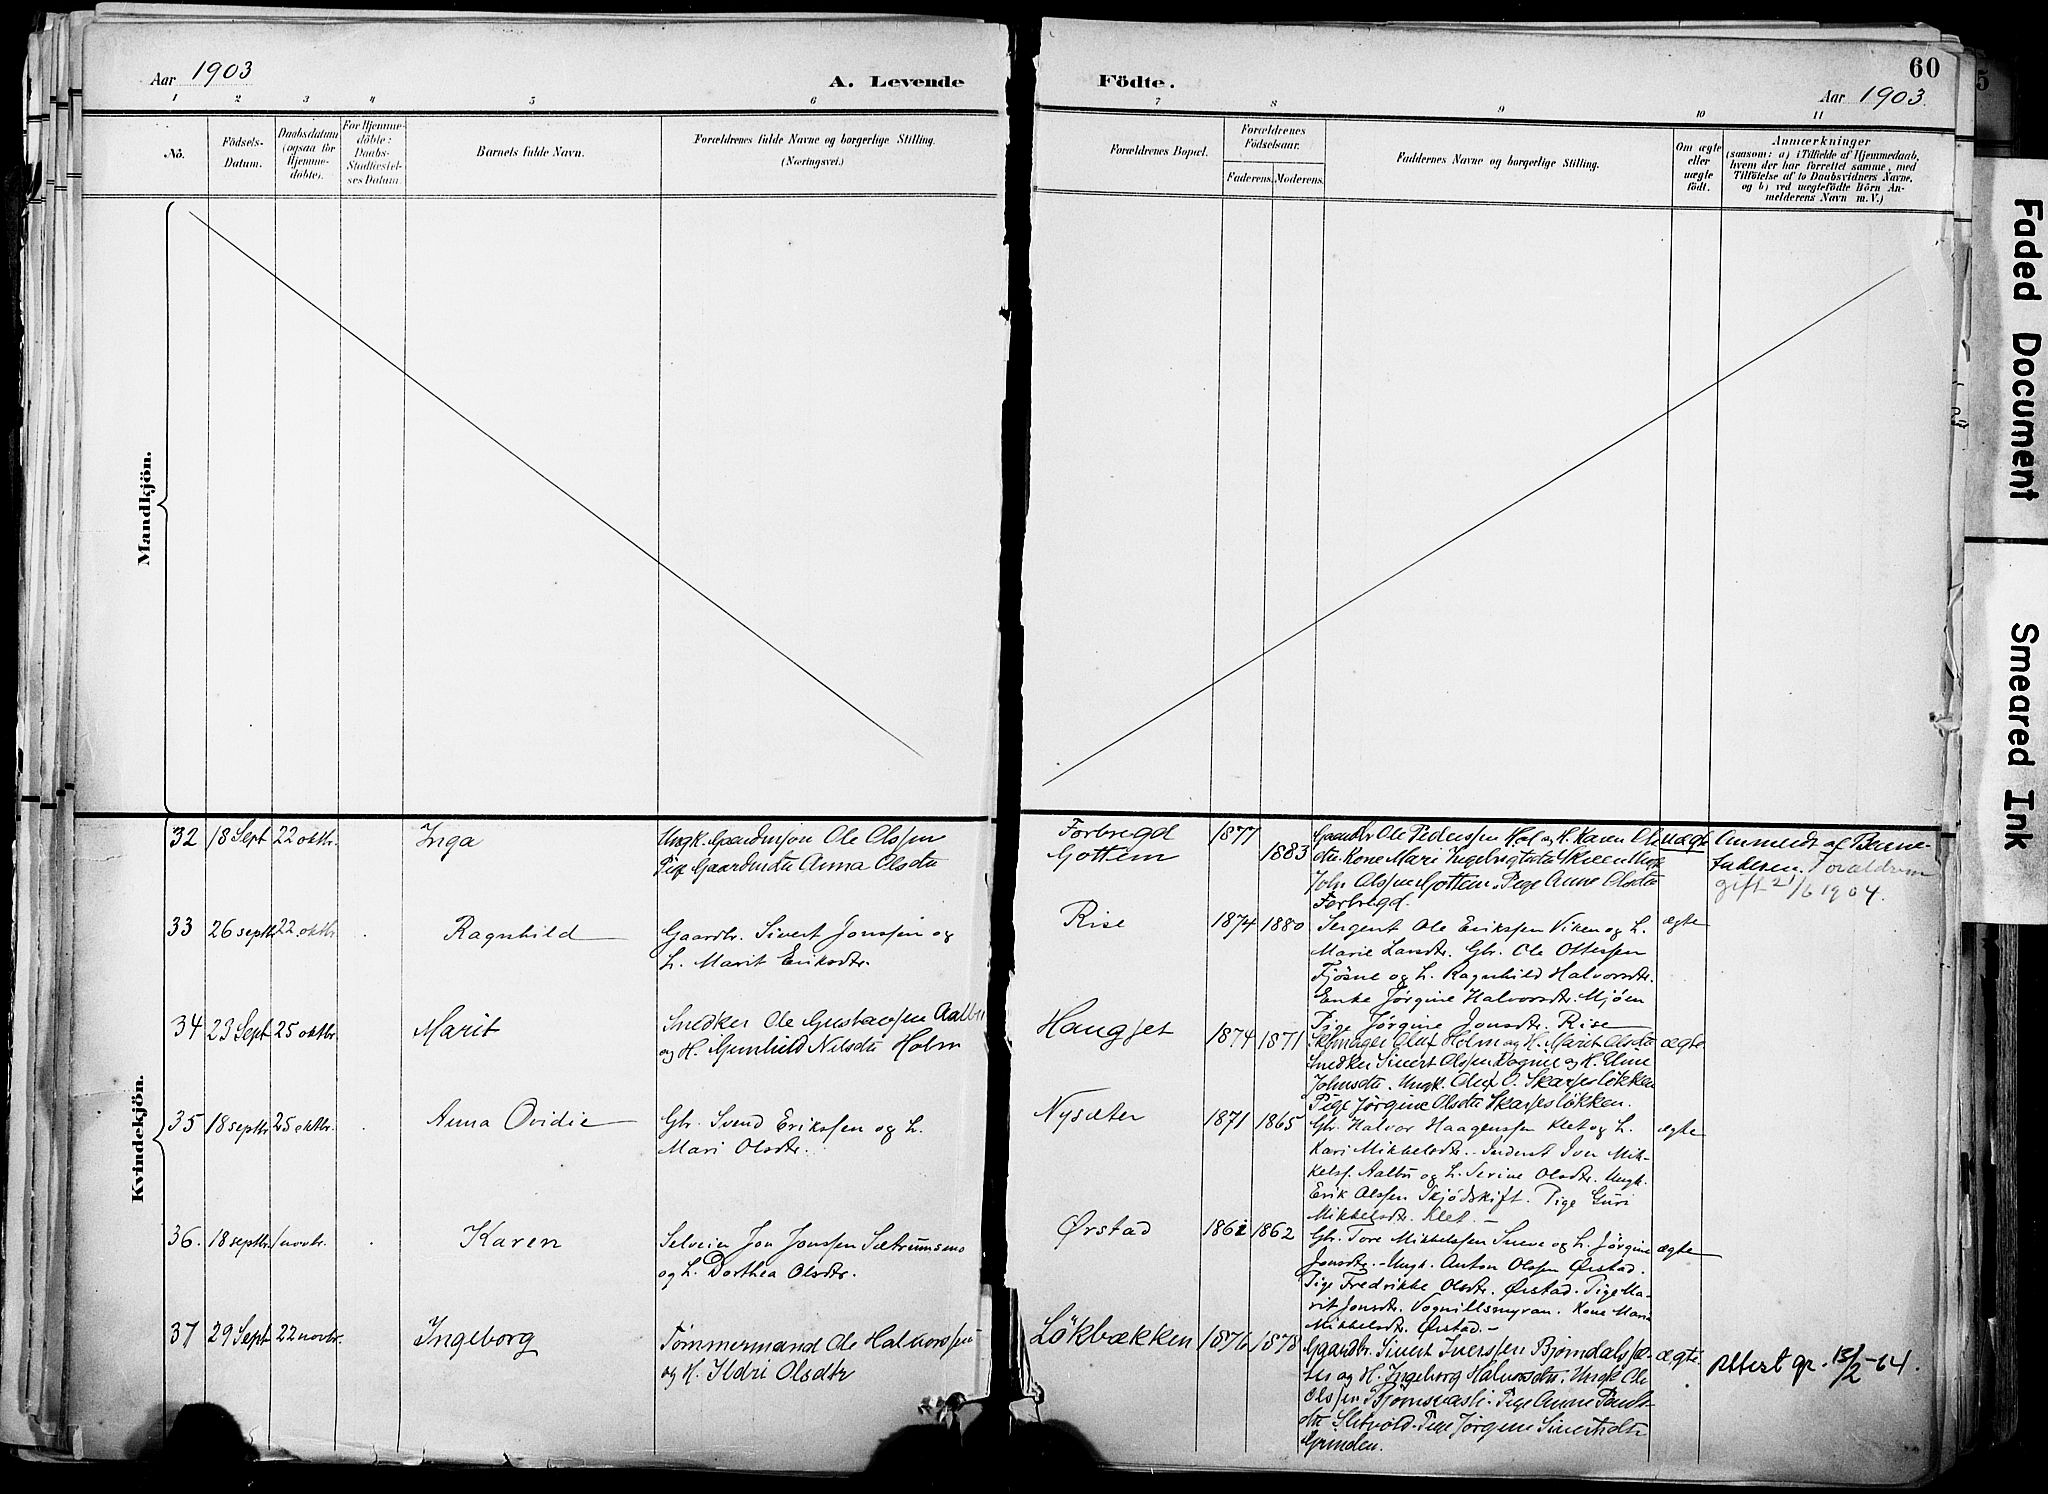 60
Aar 1903
A. Levende
Födte.
Aar 1903.
1 2 3 4 5 6 7 8 9 10 11
No.
Födsels-
Datum.
Daabsdatum
(ogsaa for
Hjemme-
döbte).
For Hjemme-
döbte:
Daabs-
Stadfæstel-
ses Datum
Barnets fulde Navn.
Forældrenes fulde Navne og borgerlige Stilling.
(Næringsvei.)
Forældrenes Bopæl.
Forældrenes
Födselsaar.
Faderens. Moderens.
Faddernes Navne og borgerlige Stilling.
Om ægte
eller
uægte
födt.
Anmærkninger
(saasom: a) i Tilfælde af Hjemmedaab,
hvem der har forrettet samme, med
Tilföielse af to Daabsvidners Navne,
og b) ved uægtefödte Börn An-
melderens Navn m. V.)
Mandkjön.
Kvindekjön.
32 18 Sept 22 oktbr. Inga
Ungk. Gaardmsøn Ole Olssen
Pige Gaardmdtr Anna Olsdtr
Forbregd
Gottem
1877
1883
Gaardbr Ole Pederssen Hol og H. Karen Ols
dtr. Kone Mari Ingebrigtsdtr
John Olssen Gottem. Pige Anne Olsdtr
Forbregd.
uægte
Anmeldt af Barne-
faderen. Forældrene
gift 21/6 1904.
33 26 septbr 22. oktbr. Ragnhild
Gaardbr. Sivert Jonssen og
h. Marit Eriksdtr.
Rise
1874 1880
Sergent Ole Erikssen Viken og h.
Marie Larsdtr. Gbr. Ole Ottersen
Fjøsne og h. Ragnhild Halvorsdtr.
Enke Jørgine Halvorsdtr. Mjøen
Pige Jørgine Jonsdtr. Rise
ægte
34 23 Sept 25 oktbr. Marit
Snedker Ole Gustavsen Aalbu
og H. Gunhild Nilsdtr Holm
Haugset
1874 1871
Skomager Oluf Holm og H. Marit Olsdtr
Snedker Sivert Olssen Vognild og H. Eline
Johnsdtr. Ungk. Oluf O. Skarjesløkken
Pige Jørgine Olsdtr Skarjesløkken.
ægte
35 18 septbr. 25 oktbr. Anna Ovidie
Gbr. Svend Erikssen og h.
Mari Olsdtr.
Nysæter
1871 1865
Gbr. Halvor Haagenssen Klet og h.
Kari Mikkelsdtr. Inderst Iver Mik-
kelsf. Aalbu og h. Serine Olsdtr. Ungk.
Erik Olssen Skjødskift. Pige Guri
Mikkelsdtr. Klet. –
ægte
36. 18 septbr. 1 novbr. Karen
Selveier Jon Jonssen Sætrumsmo
og h. Dorthea Olsdtr.
Ørstad
1861 1862
Gbr. Tore Mikkelssen Sneve og h. Jørgine
Jonsdtr. – Ungk. Anton Olssen Ørstad.
Pige Fredrikke Olsdtr. Ørstad. Pige Ma-
rit Jonsdtr. Vognillsmyran. Kone Mari
Mikkelsdtr. Ørstad. –
ægte
37 29 Sept 22 novbr. Ingeborg
Tømmermand Ole Halvorssen
og H. Ildri Olsdtr
Løkbækken
1876 1878
Gaardbr. Sivert Iverssen Bjørndalssæ-
ter og H. Ingeborg Halvorsdtr. Ungk Ole
Olssen Pige Anne
dtr Sletvold. Pige Jørgine Sivertsdtr
Grinden.
ægte.
Attest gr. 13/2-64.
Faded Document
Smeared Ink